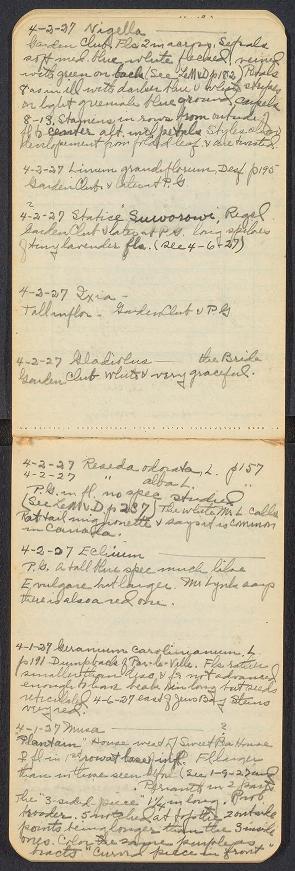 4-2-27 Nigella
Garden Club. Fls 2 in across. Sepals
soft med. blue, white flecked, veined
with green on back (See LeM & D p 182) Petals
8 as in ill with darker blue & white stripes
on light greenish blue ground, carpels
8-13. Stamens in rows from outside of
fl to center alt. with petals Styles show
developement from folded leaf & are twisted.
4-2-27 Linum grandiflorum, Desf p195
Garden Club & later at P.G
?
4-2-27 Statice Suworowi, Regel.
Garden Club & later at P.G. long spikes
of tiny lavender fls. (See 4-6-27)
4-2-27 Ixia -
Tall inflor - Garden Club & P G
4-2-27 Gladiolus the Bride
Garden Club. White & very graceful.
4-2-27 Reseda odorata, L. p157
4-2-27 " alba L. "
P.G. in fl. no spec studied
(See LeM & D p 237) The white Mr L calls
Rat tail mignonette & says it is common
in Canada.
4-2-27 Echium
P.G. A tall blue spec much like
E vulgare but larger. Mr Lynb says
there is also a red one.
4-1-27 Geranium carolinianum, L.
p191 Dump back of Par-la-Ville. Fls rather
smaller than less, & fr not advanced
enough to have beak 1 in long but seeds
reticulated 4-6-27 east of Jews Bay Stems
very red.
4-1-27 Musa ?
"Plantain" House west of Sweet Pea House
♀ fl in 1st row at base infl. Fl larger
than in those seen before (See 1-9-27 and
Perianth in 2 parts
The "3-sided piece" 1¼ in long. Prob
broader. 5 notched at top the 2 outside
points being longer than the 3 inside
ones. Color the same purple as
bracts "Curved piece in front"